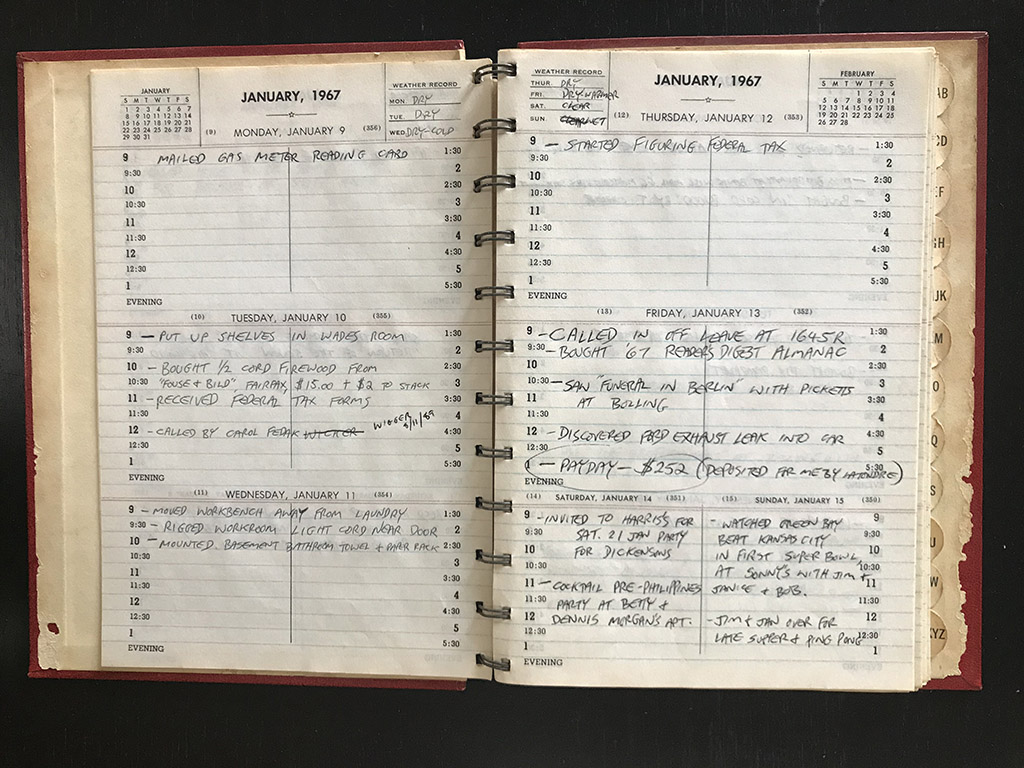 JANUARY
S M T W T F S
1 2 3 4 5 6 7
8 9 10 11 12 13 14
15 16 17 18 19 20 21
22 23 24 25 26 27 28
29 30 31
JANUARY, 1967
WEATHER RECORD
MON. DRY
TUE. DRY
WED. DRY-COLD
(9) MONDAY, JANUARY 9 (356)
9 MAILED GAS METER READING CARD 1:30
9:30 2
10 2:30
10:30 3
11 3:30
11:30 4
12 4:30
12:30 5
1 5:30
EVENING
(10) TUESDAY, JANUARY 10 (355)
9 — PUT UP SHELVES IN WADES ROOM 1:30
9:30 2
10 - BOUGHT 1/2 CORD FIREWOOD FROM 2:30
10:30 FAIRFAX, $15.00 + $2 TO STACK 3
11 - RECEIVED FEDERAL TAX FORMS 3:30
11:30 4
12 - CALLED BY CAROL 4:30
12:30 5
1 5:30
EVENING
(11) WEDNESDAY, JANUARY 11 (354)
9 - MOVED WORKBENCH AWAY FROM LAUNDRY 1:30
9:30 - RIGGED WORKROOM LIGHT CORD NEAR DOOR 2
10 - MOUNTED BASEMENT BATHROOM TOWEL + PAPER RACK 2:30
10:30 3
11 3:30
11:30 4
12 4:30
12:30 5
1 5:30
EVENING
WEATHER RECORD
THUR. DRY
FRI. DRY-WARMER
SAT. CLEAR
SUN.
JANUARY, 1967
FEBRUARY
S M T W T F S
1 2 3 4
5 6 7 8 9 10 11
12 13 14 15 16 17 18
19 20 21 22 23 24 25
26 27 28
(12) THURSDAY, JANUARY 12 (353)
9 — STARTED FIGURING FEDERAL TAX 1:30
9:30 2
10 2:30
10:30 3
11 3:30
11:30 4
12 4:30
12:30 5
1 5:30
EVENING
(13) FRIDAY, JANUARY 13 (352)
9 - CALLED IN OFF LEAVE AT 1645R 1:30
9:30 - BOUGHT '67 READERS DIGEST ALMANAC 2
10 2:30
10:30 - SAW "FUNERAL IN BERLIN" WITH PICKETTS 3
11 AT BOLLING 3:30
11:30 4
12 - DISCOVERED FORD EXHAUST LEAK INTO CAR 4:30
12:30 5
1 — PAYDAY — $252 (DEPOSITED FOR ME BY) 5:30
EVENING
(14) SATURDAY, JANUARY 14 (351)
9 - INVITED TO HARRIS'S FOR
9:30 SAT. 21 JAN PARTY
10 FOR DICKENSONS
10:30
11 - COCKTAIL PRE-PHILIPPINES
11:30 PARTY AT BETTY +
12 DENNIS MORGAN'S APT.
12:30
1
EVENING
(15) SUNDAY, JANUARY 15 (350)
- WATCHED GREEN BAY 9
BEAT KANSAS CITY 9:30
IN FIRST SUPER BOWL 10
AT SONNY'S WITH JIM + 10:30
JANICE + BOB. 11
11:30
- JIM + JAN OVER FOR 12
LATE SUPPER + PING PONG 12:30
1
AB
CD
EF
GH
JK
M
O
Q
S
U
W
XYZ